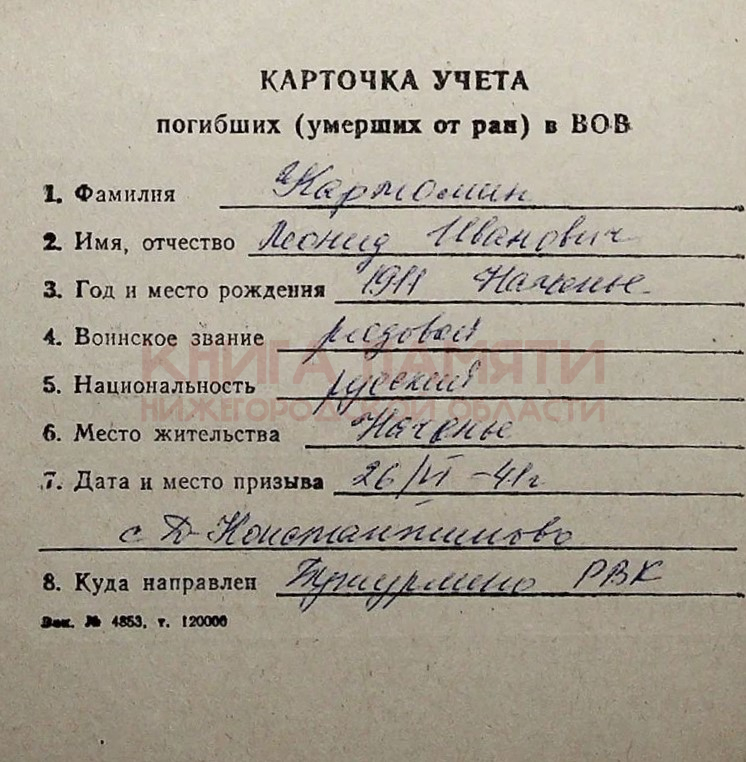 КАРТОЧКА УЧЕТА
погибших (умерших от ран) в ВОВ
1. Фамилия Картомин
2. Имя, отчество Леонид Иванович
3. Год и место рождения 1911
4. Воинское звание рядовой
КНИГА ПАМЯТИ
5. Национальность русский
НИЖЕГОРОДСКОЙ ОБЛАСТИ
6. Место жительства
7. Дата и место призыва 26/VI-41г
с Д-Константиново
8. Куда направлен РВК
Зак. № 4853, т. 120000